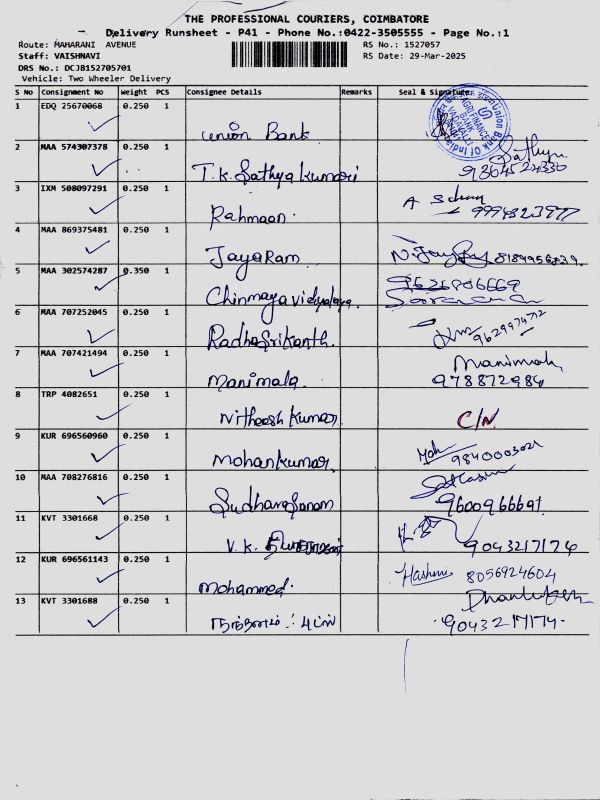 THE PROFESSIONAL COURIERS, COIMBATORE
Delivery Runsheet - P41 - Phone No.:0422-3505555 - Page No.:1
Route: MAHARANI AVENUE
RS No.: 1527057
Staff: VAISHNAVI
RS Date: 29-Mar-2025
DRS No.: DCJB152705701
Vehicle: Two Wheeler Delivery
S No Consignment No Weight PCS Consignee Details Remarks Seal & Signature
1 EDQ 25670068 0.250 1 Union Bank
2 MAA 574307378 0.250 1 T.K. Sathya kumari Sathya 9364522330
3 IXM 508097291 0.250 1 Rahmaan.
4 MAA 869375481 0.250 1 JayaRam 8189956839.
5 MAA 302574287 0.350 1 Chinmaya vidyalaya. 9626806669 Saravanan
6 MAA 707252045 0.250 1 Radha Srikanth. 9629974772
7 MAA 707421494 0.250 1 Manimala. Manimala 978872984
8 TRP 4082651 0.250 1 Nitheesh Kumar C/N
9 KUR 696560960 0.250 1 Mohankumar. Moh 9840003021
10 MAA 708276816 0.250 1 Sudharsanam 9600966691
11 KVT 3301668 0.250 1 V. K. 9043217174
12 KUR 696561143 0.250 1 Mohammed. Hashmi 8056924604
13 KVT 3301688 0.250 1 9043217174.